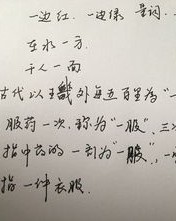 一边红. 一边绿 量词.
在水一方.
千人一面
古代以王畿外每五百里为“一
服药一次,称为“一服”,三次
指中药的一剂为“一服”,一
指一件衣服.